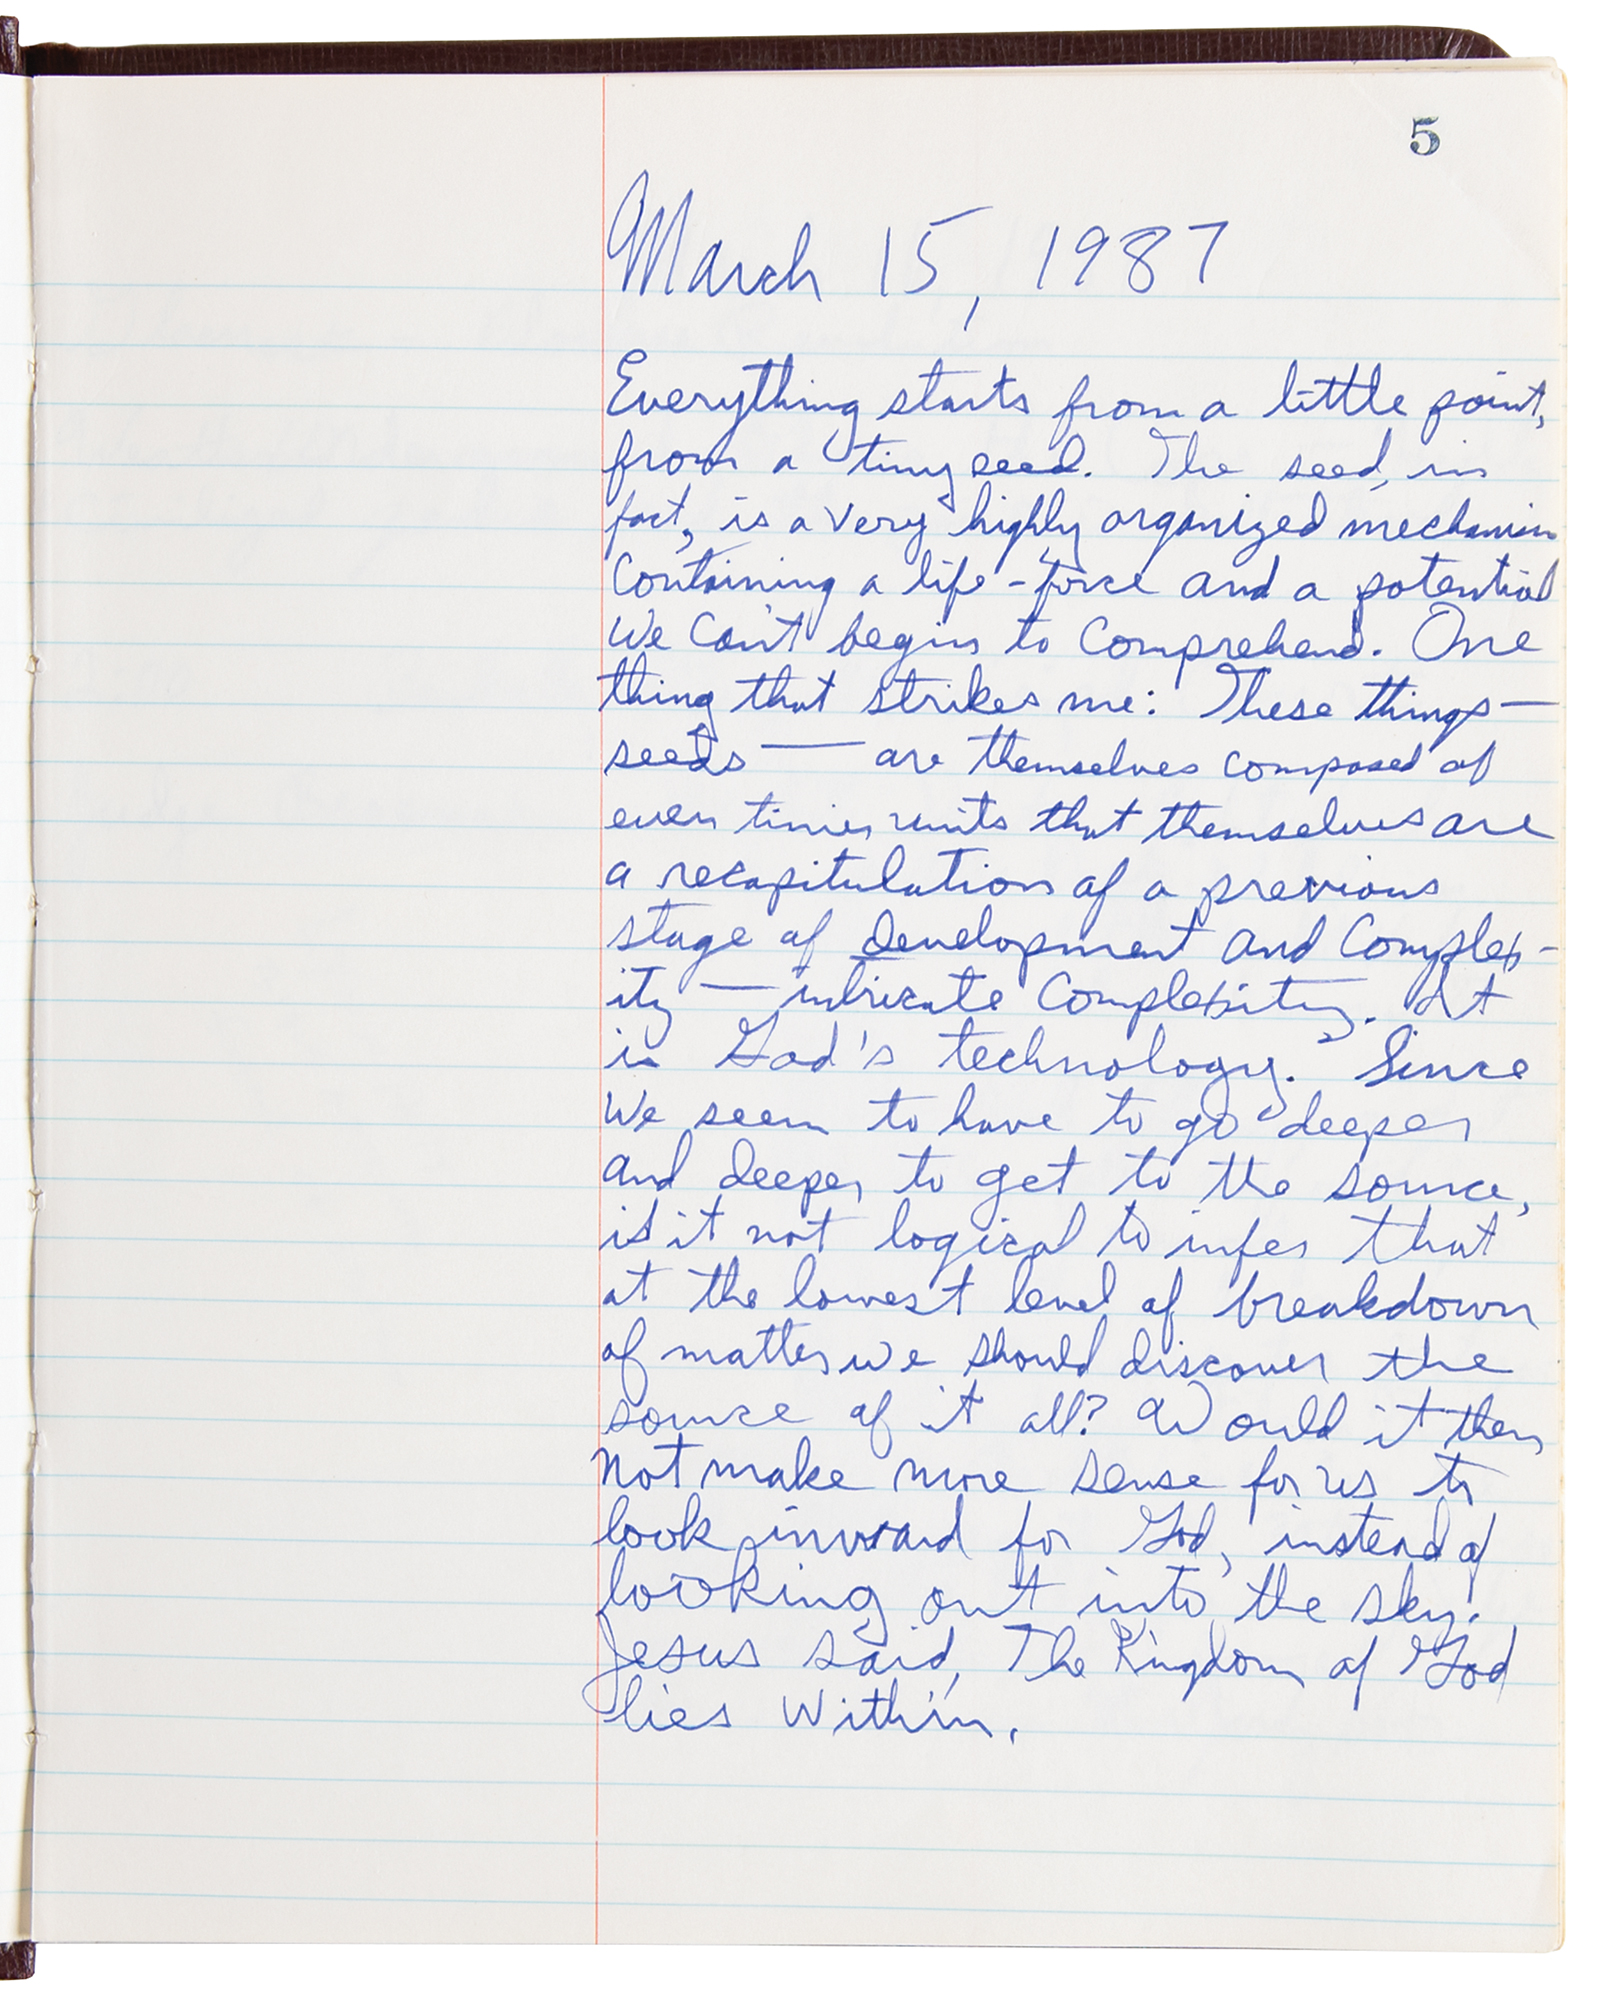 5
March 15, 1987
Everything starts from a little point,
from a tiny seed. The seed, in
fact, is a very highly organized mechanism
containing a life-force and a potential
we can't begin to comprehend. One
thing that strikes me: These things—
seeds — are themselves composed of
even tinier units that themselves are
a recapitulation of a previous
stage of development and complex-
ity — intricate complexity. It
is God's technology. Since
we seem to have to go deeper
and deeper to get to the source,
is it not logical to infer that
at the lowest level of breakdown
of matter we should discover the
source of it all? Would it then
not make more sense for us to
look inward for God, instead of
looking out into the sky.
Jesus said, The Kingdom of God
lies within.